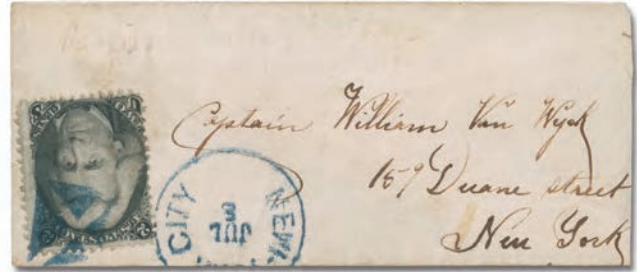 Captain William Van Wyck
159 Duane street
New York
NEW
CITY
JUL
3